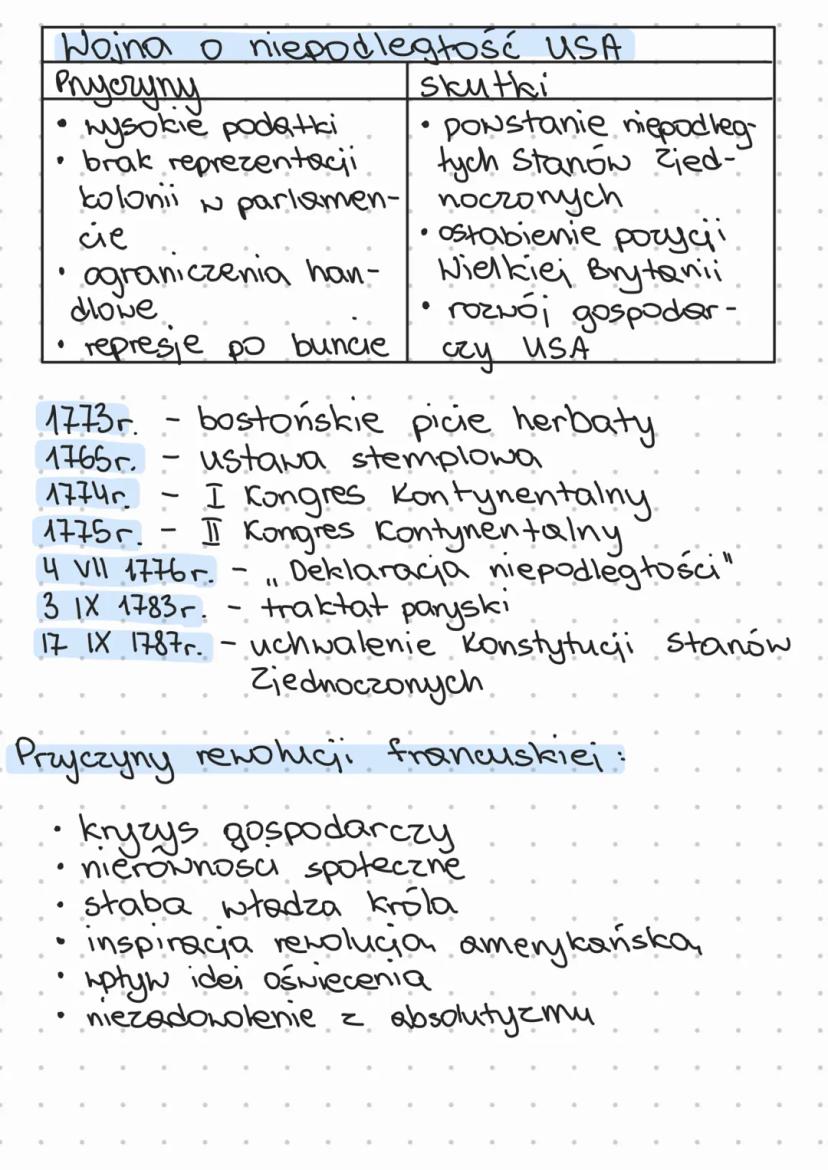 Wojna o niepodległość USA
Przyczyny
• wysokie podatki
• brak reprezentacji
kolonii w parlamen-
cie
• ograniczenia han-
dlowe
• represje po buncie
skutki
• powstanie niepodleg-
łych Stanów Zjed-
noczonych
• osłabienie pozycji
Wielkiej Brytanii
• rozwój gospodar-
czy USA
1773r. - bostońskie picie herbaty
1765r. - ustawa stemplowa
1774r. - I Kongres Kontynentalny
1775r. - II Kongres Kontynentalny
4 VII 1776r. - „Deklaracja niepodległości"
3 IX 1783r. - traktat paryski
17 IX 1787r. - uchwalenie Konstytucji Stanów
Zjednoczonych
Przyczyny rewolucji francuskiej:
• kryzys gospodarczy
• nierówności społeczne
• słaba władza króla
• inspiracja rewolucją amerykańską
• wpływ idei oświecenia
• niezadowolenie z absolutyzmu